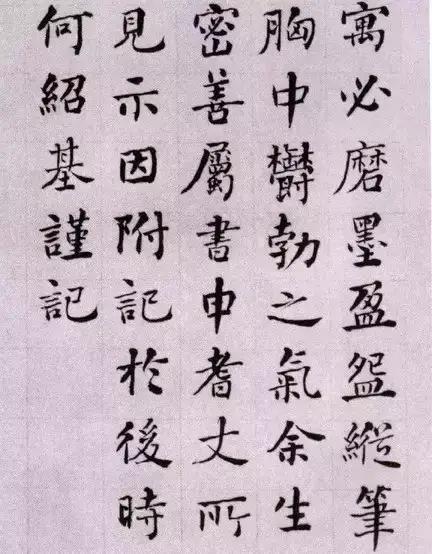 寓必磨墨盈盌縱筆
胸中欝勃之氣余生
密善屬書申耆丈所
見示因附記於後時
何紹基謹記